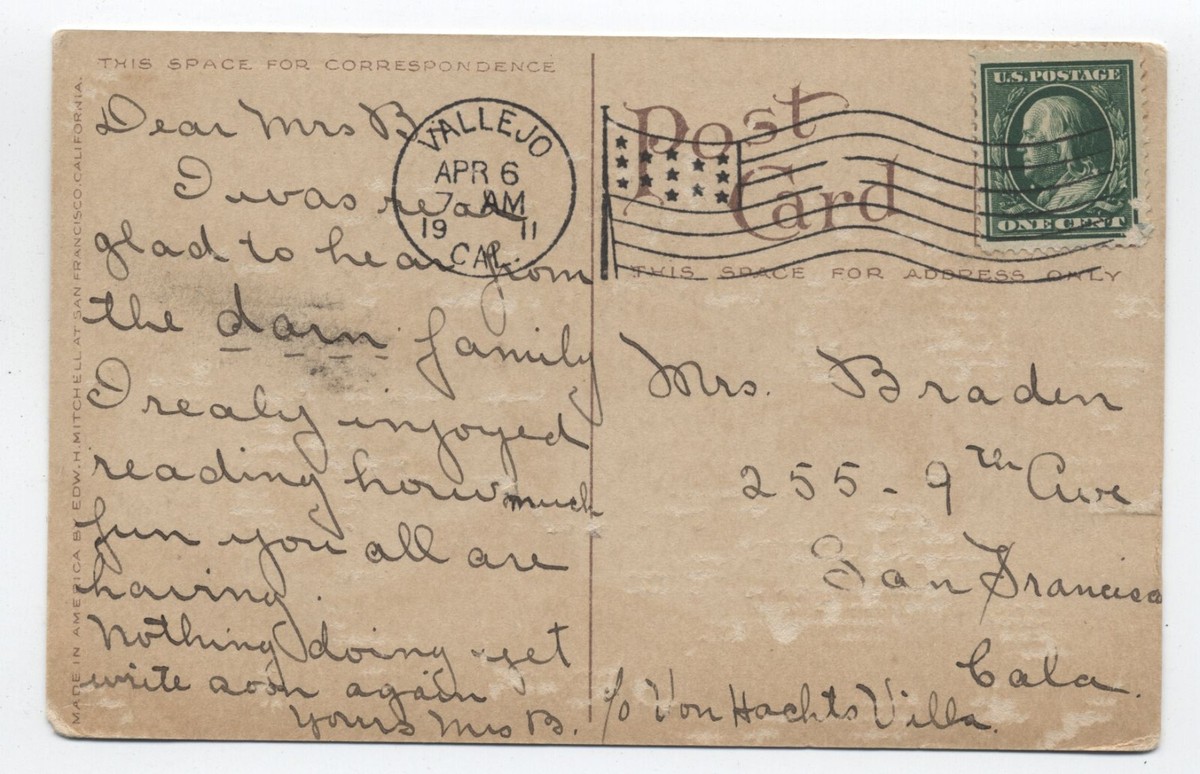 THIS SPACE FOR CORRESPONDENCE
Dear Mrs B.
I was realy
glad to hear from
the darn family
I realy injoyed
reading how much
fun you all are
having.
Nothing doing yet
write soon again
Yours Mrs B.
MADE IN AMERICA BY EDW. H. MITCHELL AT SAN FRANCISCO, CALIFORNIA.
VALLEJO
APR 6
7 AM
19 11
CAL.
Post
Card
U.S. POSTAGE
ONE CENT
THIS SPACE FOR ADDRESS ONLY
Mrs. Braden
255 - 9th Ave
San Francisco
Cala.
c/o Von Hachts Villa.